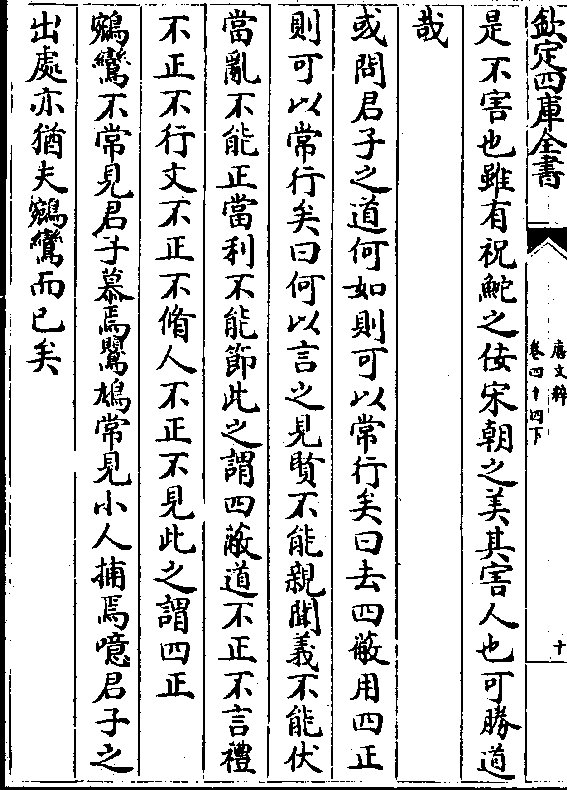 欽定四庫全書
唐文粹
卷四十四下
十
是不害也雖有祝鮀之佞宋朝之美其害人也可勝道
哉
或問君子之道何如則可以常行矣曰去四蔽用四正
則可以常行矣曰何以言之見賢不能親聞義不能伏
當亂不能正當利不能節此之謂四蔽道不正不言禮
不正不行文不正不脩人不正不見此之謂四正
鵷鸞不常見君子慕焉鷃鳩常見小人捕焉噫君子之
出處亦猶夫鵷鸞而已矣